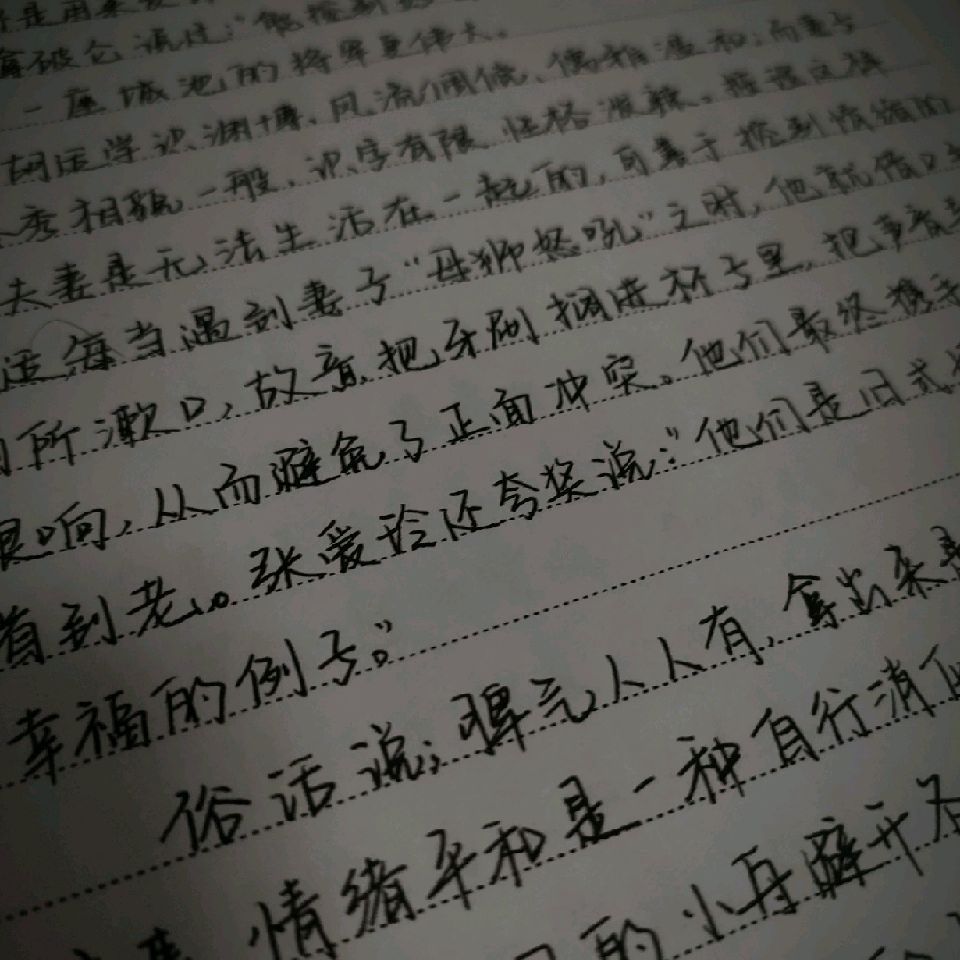 是用来发
拿破仑说过:"能控制好
一座城池的将军更伟大。
胡适学识渊博、风流倜傥、儒雅温和;而妻子
秀相貌一般、识字有限、性格泼辣。按说这样
夫妻是无法生活在一起的,可善于控制情绪的
适每当遇到妻子"母狮怒吼"之时,他就借口
所漱口,故意把牙刷搁进杯子里,把声音
很响,从而避免了正面冲突。他们最终携手
着到老。张爱玲还夸奖说:"他们是旧式
幸福的例子。"
俗话说:脾气人人有,拿出来是
情绪平和是一种自行消化
的小舟避开